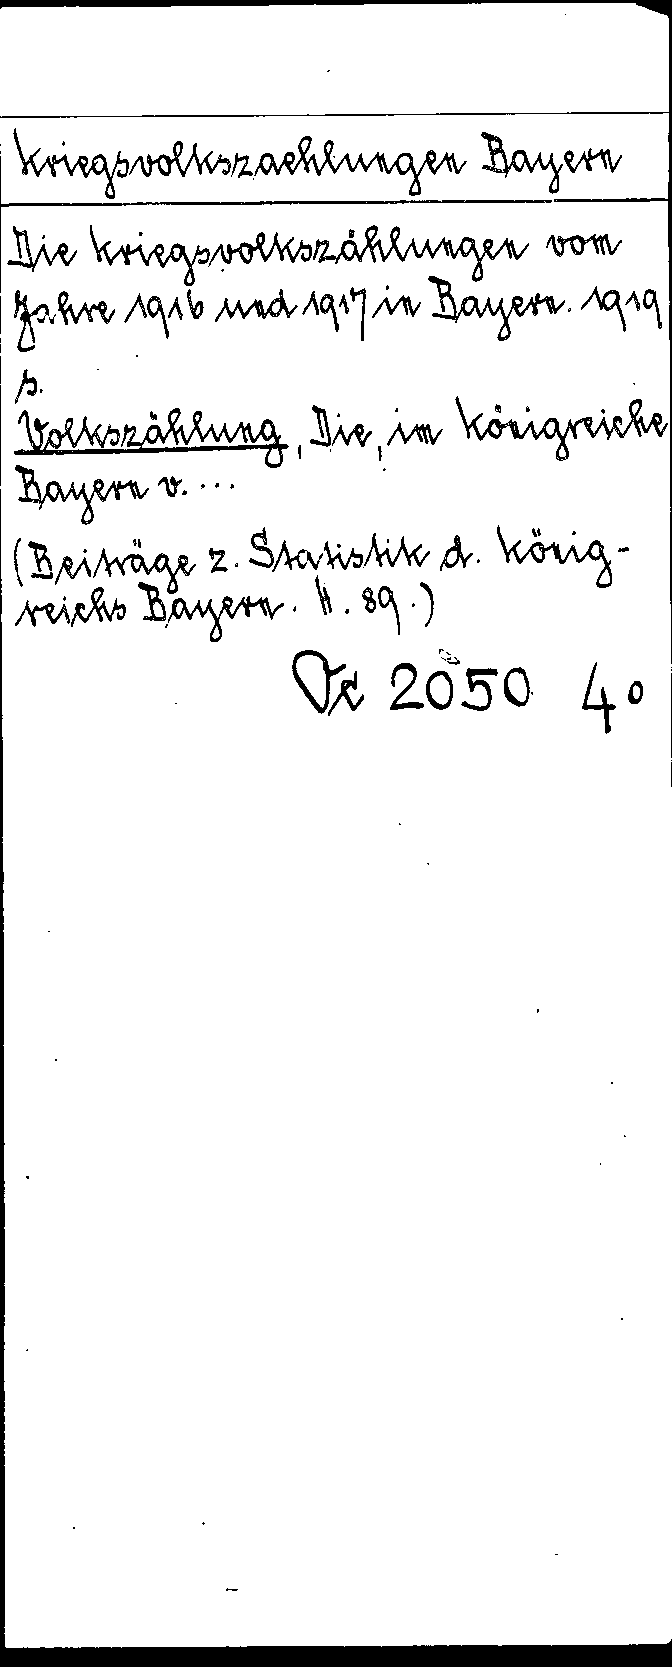 Kriegsvolkszaehlungen Bayern
Die Kriegsvolkszählungen vom
Jahre 1916 und 1917 in Bayern. 1919
s.
Volkszählung, Die, im Königreiche
Bayern v. ...
(Beiträge z. Statistik d. König-
reichs Bayern. H. 89.)
Vc 2050 4°